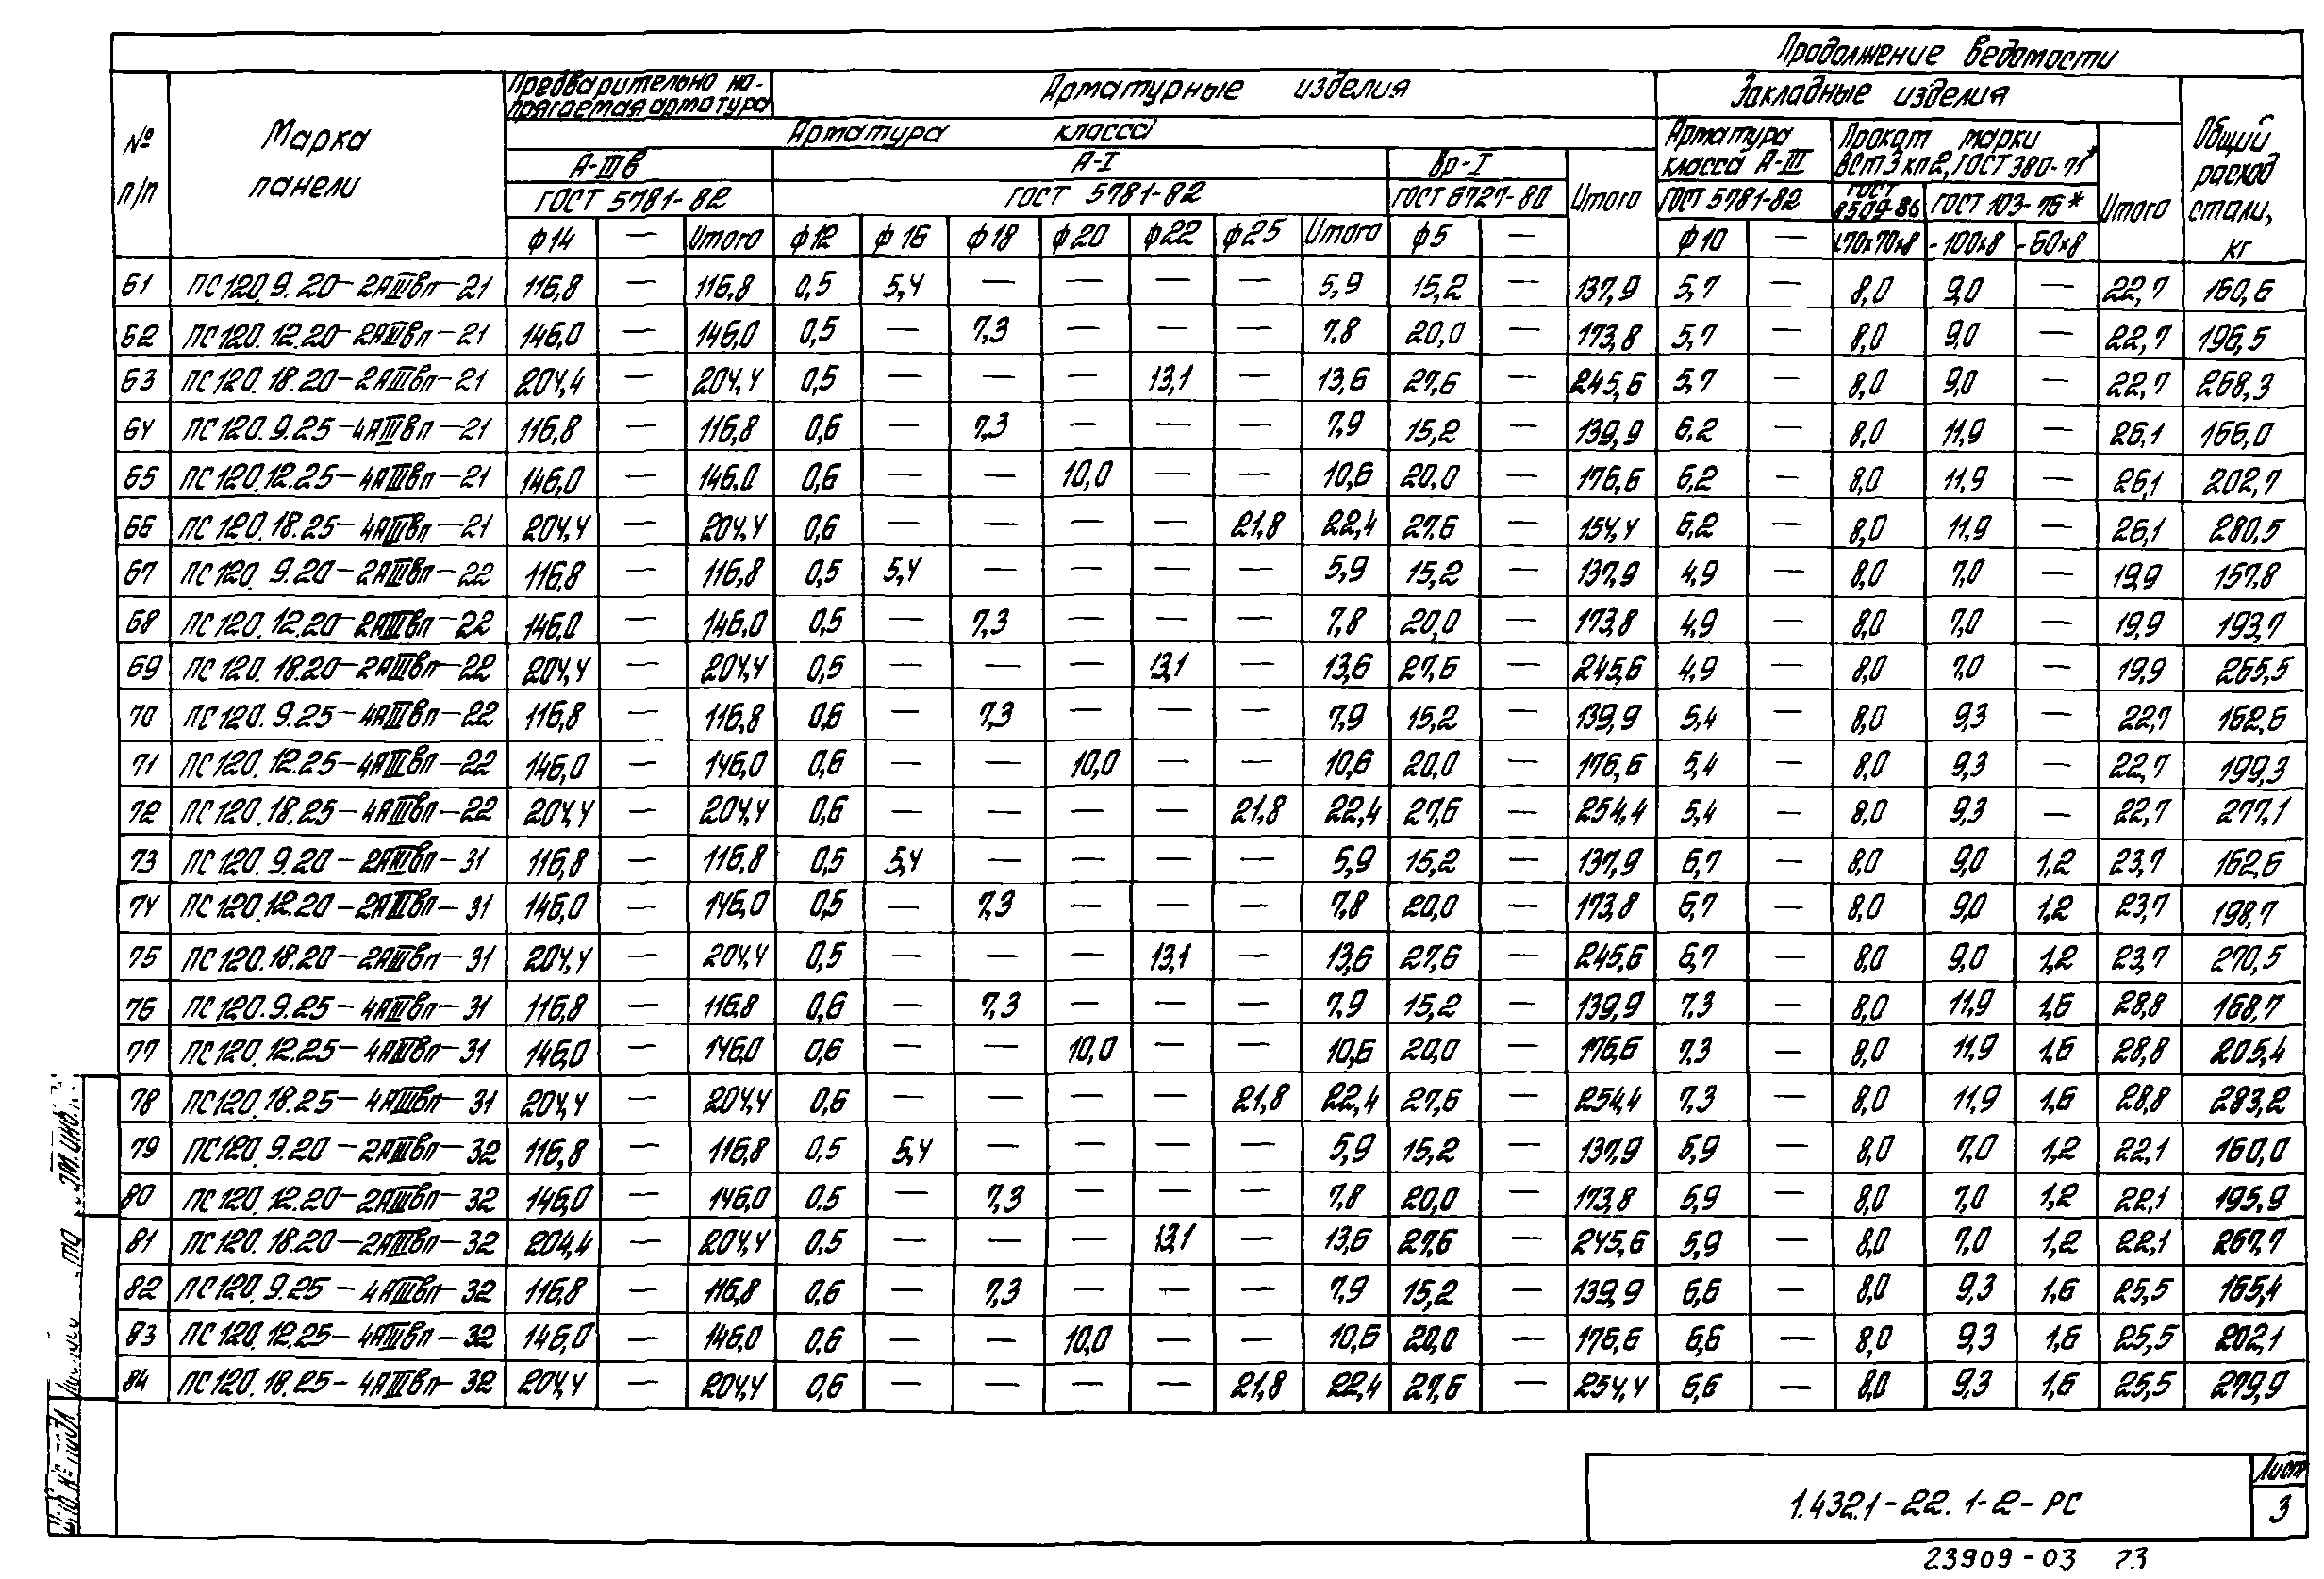 Продолжение ведомости
№ п/п
Марка панели
Предварительно на-
прягаемая арматура
Арматурные изделия
Закладные изделия
Общий расход стали, кг
Арматура класса
Арматура класса А-III
Прокат марки
ВСт3кп2, ГОСТ 380-71*
А-IIIв
А-I
Вр-I
Итого
ГОСТ 5781-82
ГОСТ 5781-82
ГОСТ 6727-80
ГОСТ 5781-82
ГОСТ 8509-86
ГОСТ 103-76*
Итого
ф14 — Итого ф12 ф16 ф18 ф20 ф22 ф25 Итого ф5 — ф10 — 70х70х8 -100х8 -60х8
61 ПС120.9.20-2АIIIвп-21 116,8 — 116,8 0,5 5,4 — — — — 5,9 15,2 — 137,9 5,7 — 8,0 9,0 — 22,7 160,6
62 ПС120.12.20-2АIIIвп-21 146,0 — 146,0 0,5 — 7,3 — — — 7,8 20,0 — 173,8 5,7 — 8,0 9,0 — 22,7 196,5
63 ПС120.18.20-2АIIIвп-21 204,4 — 204,4 0,5 — — — 13,1 — 13,6 27,6 — 245,6 5,7 — 8,0 9,0 — 22,7 268,3
64 ПС120.9.25-4АIIIвп-21 116,8 — 116,8 0,6 — 7,3 — — — 7,9 15,2 — 139,9 6,2 — 8,0 11,9 — 26,1 166,0
65 ПС120.12.25-4АIIIвп-21 146,0 — 146,0 0,6 — — 10,0 — — 10,6 20,0 — 176,6 6,2 — 8,0 11,9 — 26,1 202,7
66 ПС120.18.25-4АIIIвп-21 204,4 — 204,4 0,6 — — — — 21,8 22,4 27,6 — 154,4 6,2 — 8,0 11,9 — 26,1 280,5
67 ПС120.9.20-2АIIIвп-22 116,8 — 116,8 0,5 5,4 — — — — 5,9 15,2 — 137,9 4,9 — 8,0 7,0 — 19,9 157,8
68 ПС120.12.20-2АIIIвп-22 146,0 — 146,0 0,5 — 7,3 — — — 7,8 20,0 — 173,8 4,9 — 8,0 7,0 — 19,9 193,7
69 ПС120.18.20-2АIIIвп-22 204,4 — 204,4 0,5 — — — 13,1 — 13,6 27,6 — 245,6 4,9 — 8,0 7,0 — 19,9 265,5
70 ПС120.9.25-4АIIIвп-22 116,8 — 116,8 0,6 — 7,3 — — — 7,9 15,2 — 139,9 5,4 — 8,0 9,3 — 22,7 162,6
71 ПС120.12.25-4АIIIвп-22 146,0 — 146,0 0,6 — — 10,0 — — 10,6 20,0 — 176,6 5,4 — 8,0 9,3 — 22,7 199,3
72 ПС120.18.25-4АIIIвп-22 204,4 — 204,4 0,6 — — — — 21,8 22,4 27,6 — 254,4 5,4 — 8,0 9,3 — 22,7 277,1
73 ПС120.9.20-2АIIIвп-31 116,8 — 116,8 0,5 5,4 — — — — 5,9 15,2 — 137,9 6,7 — 8,0 9,0 1,2 23,7 162,6
74 ПС120.12.20-2АIIIвп-31 146,0 — 146,0 0,5 — 7,3 — — — 7,8 20,0 — 173,8 6,7 — 8,0 9,0 1,2 23,7 198,7
75 ПС120.18.20-2АIIIвп-31 204,4 — 204,4 0,5 — — — 13,1 — 13,6 27,6 — 245,6 6,7 — 8,0 9,0 1,2 23,7 270,5
76 ПС120.9.25-4АIIIвп-31 116,8 — 116,8 0,6 — 7,3 — — — 7,9 15,2 — 139,9 7,3 — 8,0 11,9 1,6 28,8 168,7
77 ПС120.12.25-4АIIIвп-31 146,0 — 146,0 0,6 — — 10,0 — — 10,6 20,0 — 176,6 7,3 — 8,0 11,9 1,6 28,8 205,4
78 ПС120.18.25-4АIIIвп-31 204,4 — 204,4 0,6 — — — — 21,8 22,4 27,6 — 254,4 7,3 — 8,0 11,9 1,6 28,8 283,2
79 ПС120.9.20-2АIIIвп-32 116,8 — 116,8 0,5 5,4 — — — — 5,9 15,2 — 137,9 5,9 — 8,0 7,0 1,2 22,1 160,0
80 ПС120.12.20-2АIIIвп-32 146,0 — 146,0 0,5 — 7,3 — — — 7,8 20,0 — 173,8 5,9 — 8,0 7,0 1,2 22,1 195,9
81 ПС120.18.20-2АIIIвп-32 204,4 — 204,4 0,5 — — — 13,1 — 13,6 27,6 — 245,6 5,9 — 8,0 7,0 1,2 22,1 267,7
82 ПС120.9.25-4АIIIвп-32 116,8 — 116,8 0,6 — 7,3 — — — 7,9 15,2 — 139,9 6,6 — 8,0 9,3 1,6 25,5 165,4
83 ПС120.12.25-4АIIIвп-32 146,0 — 146,0 0,6 — — 10,0 — — 10,6 20,0 — 176,6 6,6 — 8,0 9,3 1,6 25,5 202,1
84 ПС120.18.25-4АIIIвп-32 204,4 — 204,4 0,6 — — — — 21,8 22,4 27,6 — 254,4 6,6 — 8,0 9,3 1,6 25,5 279,9
1.432.1-22.1-2-РС
Лист
3
23909-03 23